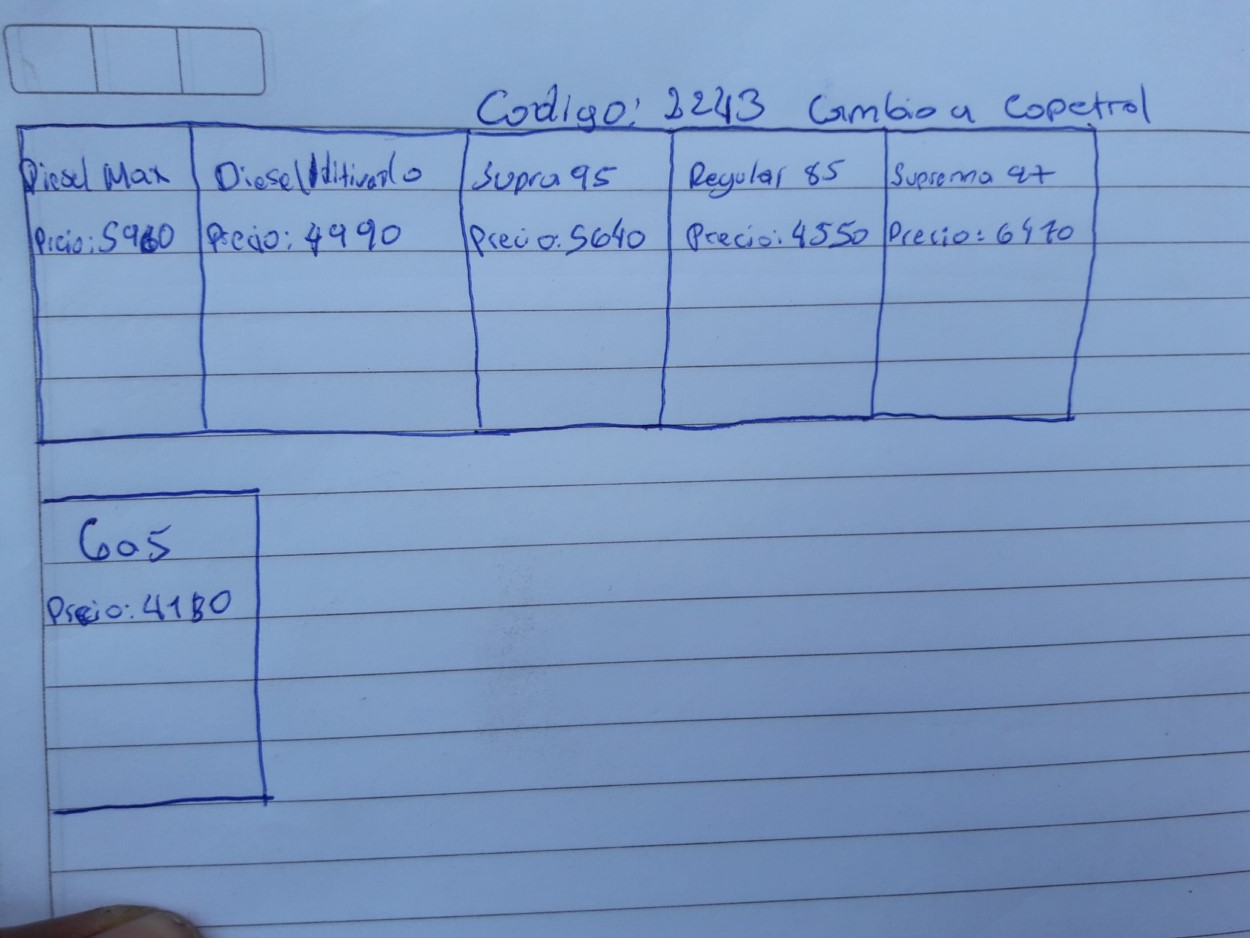 Codigo: 2243 Cambio a Copetrol
Diesel Max Diesel Aditivado Supra 95 Regular 85 Suprema 97
Precio: 5960 Precio: 4990 Precio: 5640 Precio: 4550 Precio: 6470
Gas
Precio: 4180